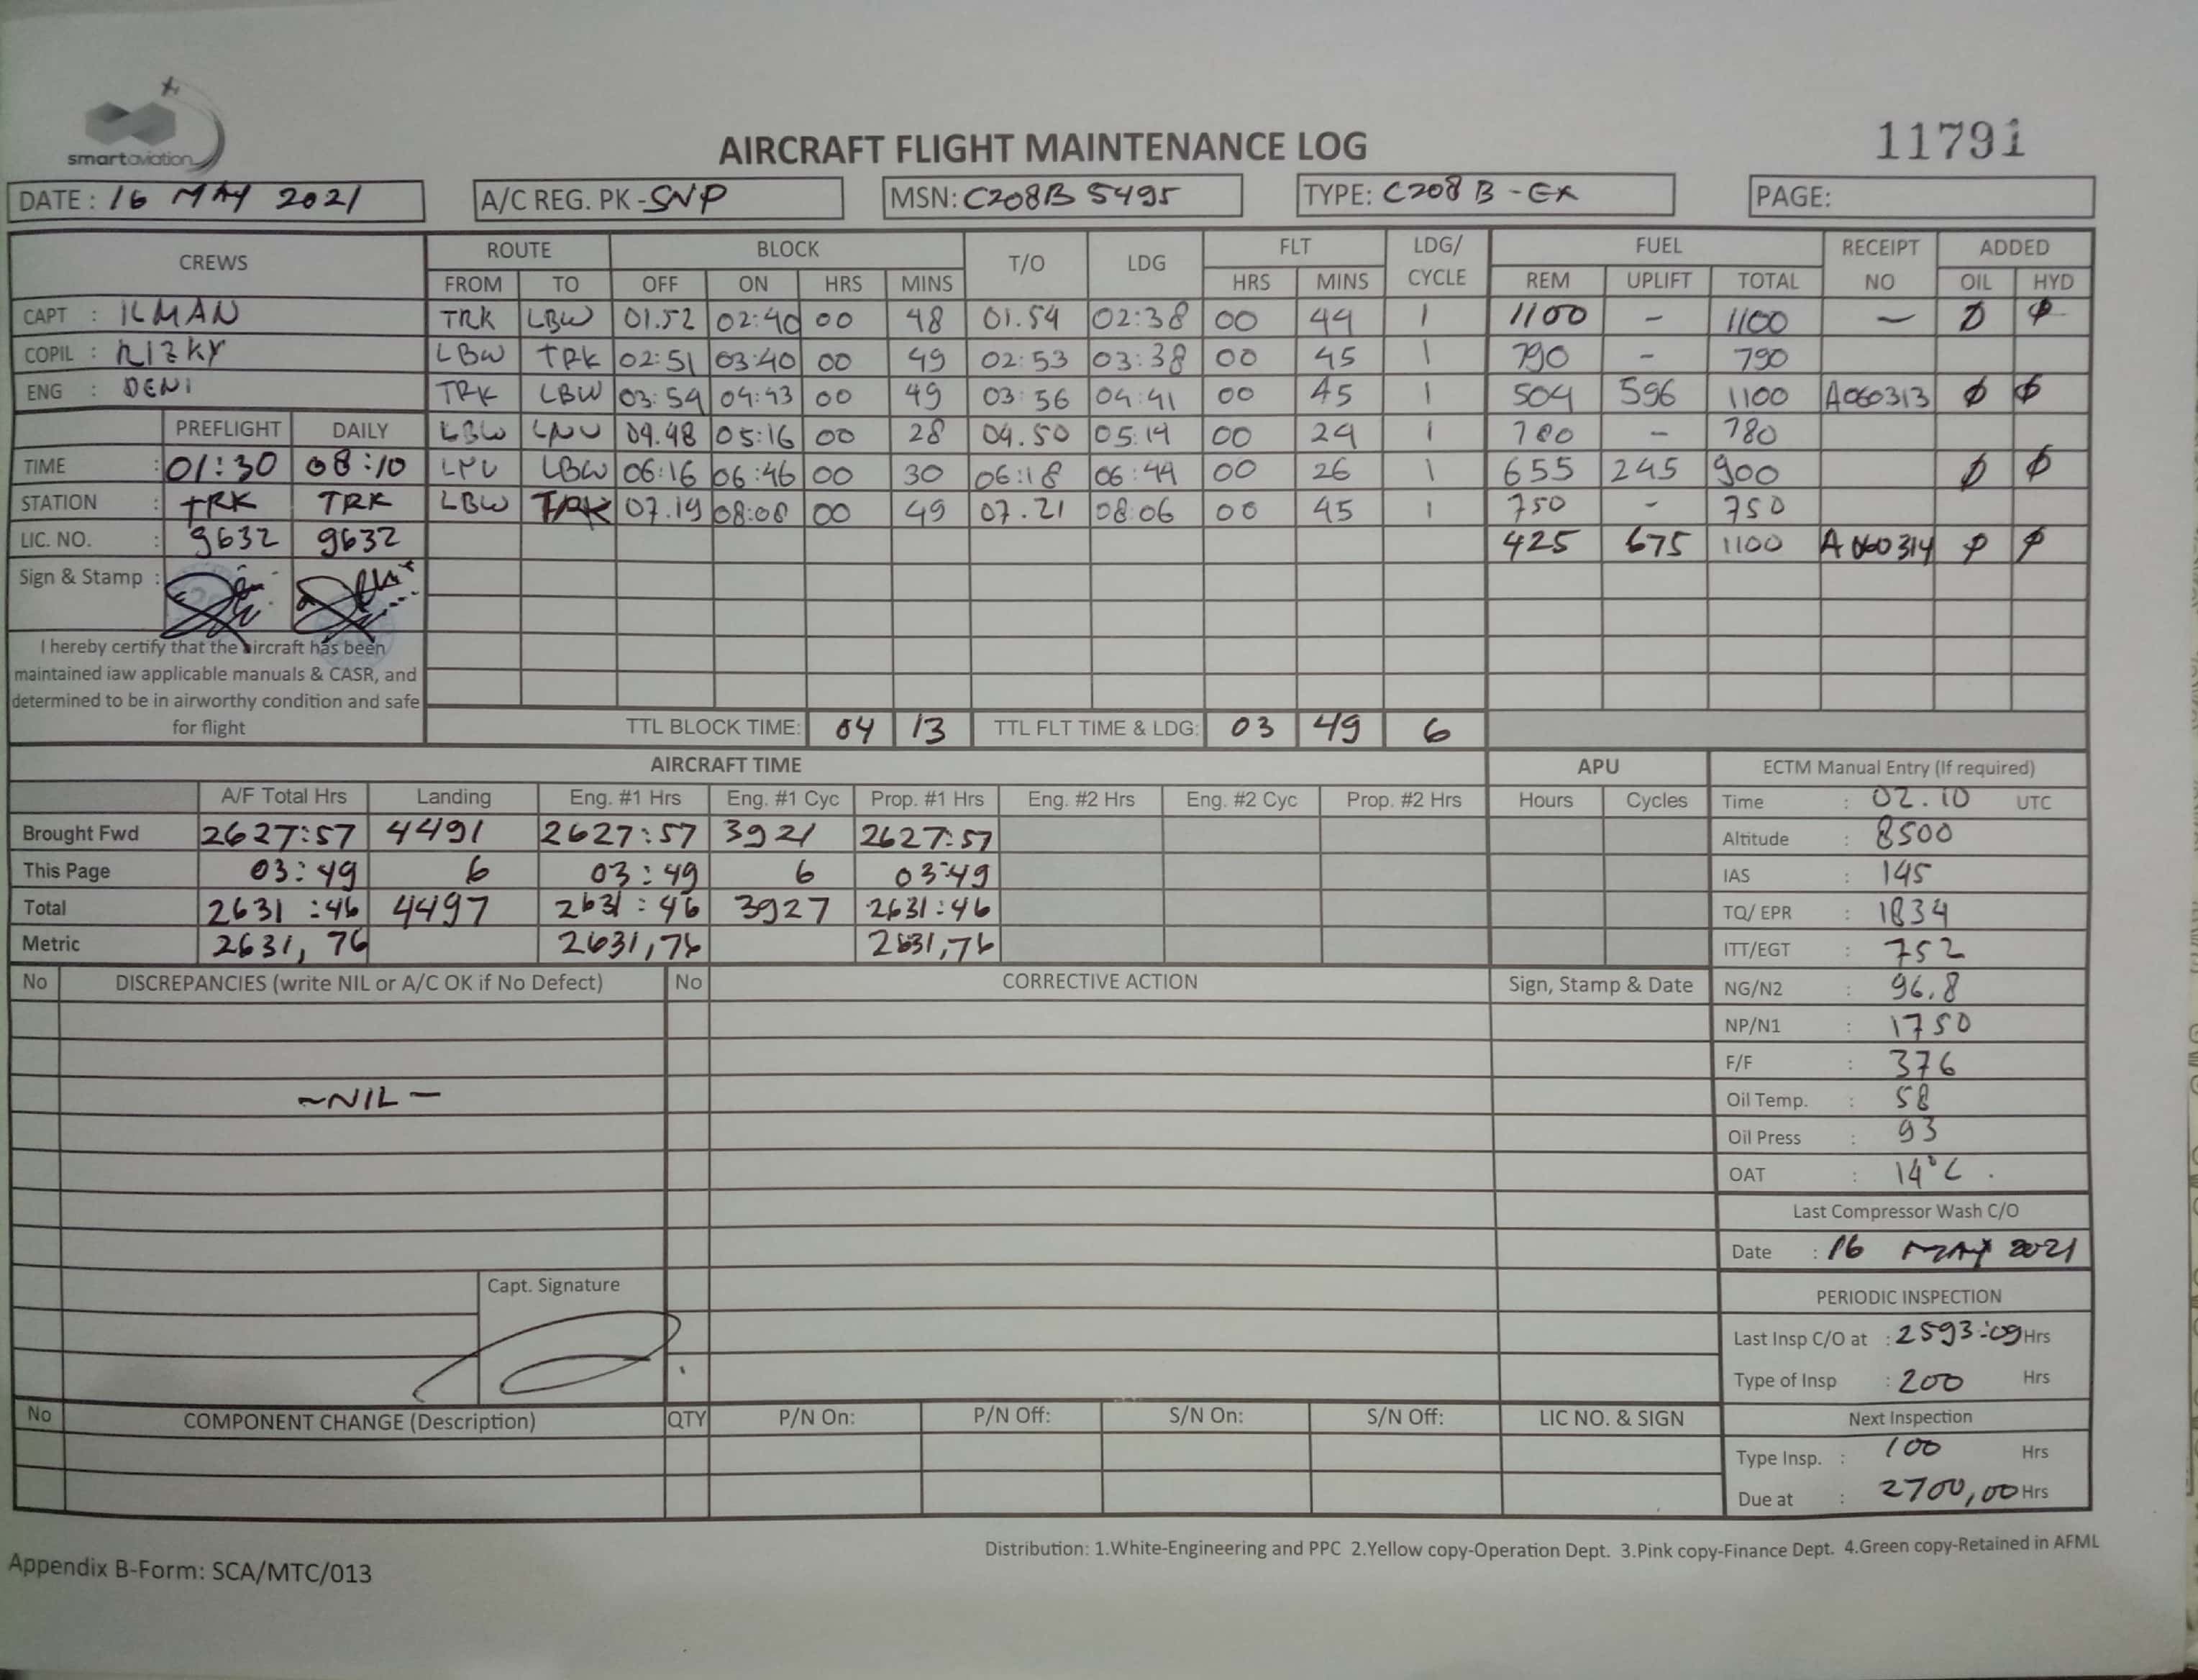 smartaviation
AIRCRAFT FLIGHT MAINTENANCE LOG
11791
DATE : 16 MAY 2021 A/C REG. PK - SNP MSN: C208B 5495 TYPE: C208 B - EX PAGE:
CREWS ROUTE BLOCK T/O LDG FLT LDG/ CYCLE FUEL RECEIPT NO ADDED
FROM TO OFF ON HRS MINS HRS MINS REM UPLIFT TOTAL OIL HYD
CAPT : ILMAN TRK LBW 01.52 02:40 00 48 01.54 02:38 00 44 1 1100 - 1100 - Ø Ø
COPIL : RIZKY LBW TRK 02:51 03:40 00 49 02:53 03:38 00 45 1 790 - 790
ENG : DENI TRK LBW 03:54 04:43 00 49 03:56 04:41 00 45 1 504 596 1100 A060313 Ø Ø
PREFLIGHT DAILY LBW LNU 04.48 05:16 00 28 04.50 05:14 00 24 1 780 - 780
TIME : 01:30 08:10 LNU LBW 06:16 06:46 00 30 06:18 06:44 00 26 1 655 245 900 Ø Ø
STATION : TRK TRK LBW TRK 07.19 08:08 00 49 07.21 08:06 00 45 1 750 - 750
LIC. NO. : 9632 9632 425 675 1100 A060314 Ø Ø
Sign & Stamp :
I hereby certify that the aircraft has been
maintained iaw applicable manuals & CASR, and
determined to be in airworthy condition and safe
for flight
TTL BLOCK TIME: 04 13 TTL FLT TIME & LDG: 03 49 6
AIRCRAFT TIME APU ECTM Manual Entry (If required)
A/F Total Hrs Landing Eng. #1 Hrs Eng. #1 Cyc Prop. #1 Hrs Eng. #2 Hrs Eng. #2 Cyc Prop. #2 Hrs Hours Cycles Time : 02.10 UTC
Brought Fwd 2627:57 4491 2627:57 3921 2627:57 Altitude : 8500
This Page 03:49 6 03:49 6 03:49 IAS : 145
Total 2631:46 4497 2631:46 3927 2631:46 TQ/ EPR : 1834
Metric 2631,76 2631,76 2631,76 ITT/EGT : 752
No DISCREPANCIES (write NIL or A/C OK if No Defect) No CORRECTIVE ACTION Sign, Stamp & Date NG/N2 : 96.8
NP/N1 : 1750
F/F : 376
~NIL- Oil Temp. : 58
Oil Press : 93
OAT : 14°C .
Last Compressor Wash C/O
Date : 16 MAY 2021
Capt. Signature
PERIODIC INSPECTION
Last Insp C/O at : 2593:09 Hrs
Type of Insp : 200 Hrs
No COMPONENT CHANGE (Description) QTY P/N On: P/N Off: S/N On: S/N Off: LIC NO. & SIGN Next Inspection
Type Insp. : 100 Hrs
Due at : 2700,00 Hrs
Distribution: 1.White-Engineering and PPC 2.Yellow copy-Operation Dept. 3.Pink copy-Finance Dept. 4.Green copy-Retained in AFML
Appendix B-Form: SCA/MTC/013